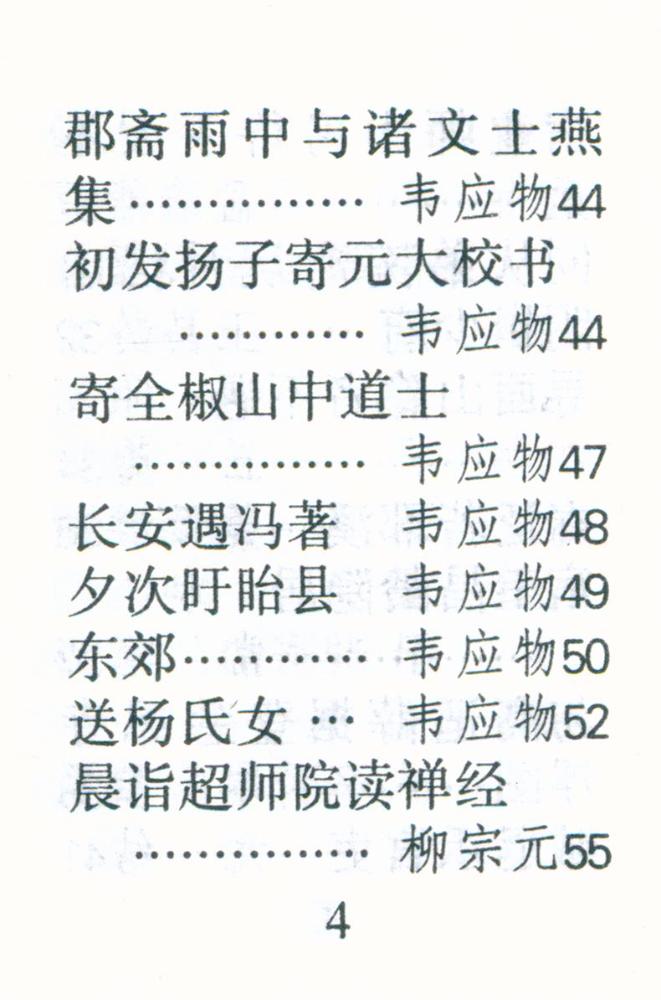 郡斋雨中与诸文士燕
集……………… 韦应物44
初发扬子寄元大校书
………… 韦应物44
寄全椒山中道士
…………… 韦应物47
长安遇冯著 韦应物48
夕次盱眙县 韦应物49
东郊………… 韦应物50
送杨氏女… 韦应物52
晨诣超师院读禅经
…………… 柳宗元55
4